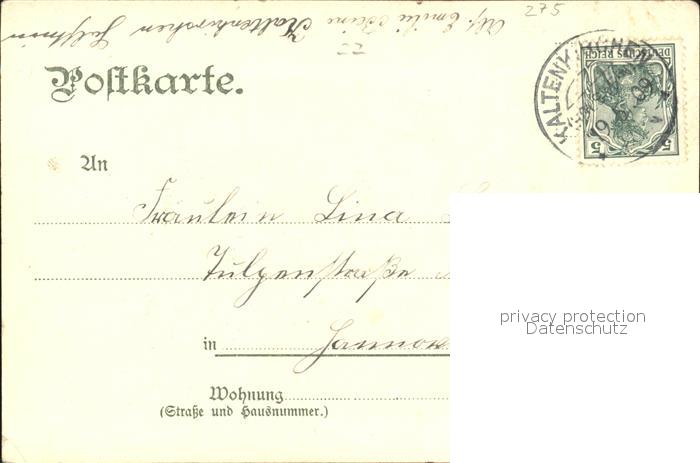 Abs. Emilie Heine Kaltenkirchen Holstein
275
22
Postkarte.
KALTENKIRCHEN
DEUTSCHES REICH
5 5
An
Fräulein Lina
Tulpenstraße
in Hannov
privacy protection
Datenschutz
Wohnung
(Straße und Hausnummer.)